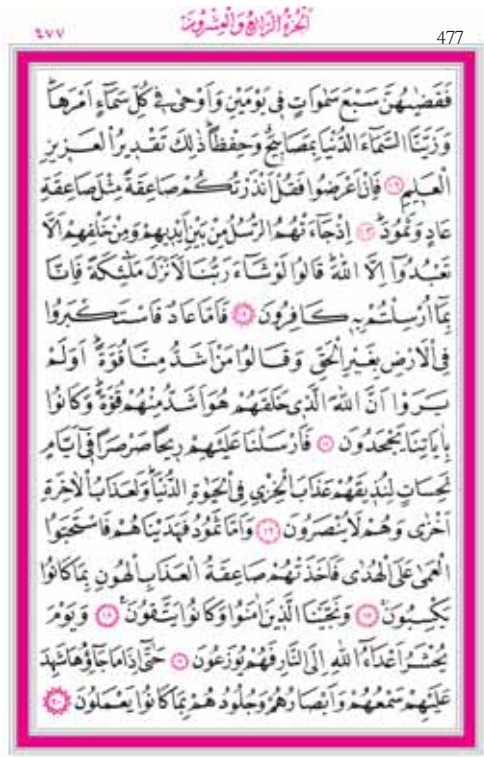 ٤٧٧
اَلْجُزْءُ الرَّابِعُ وَالْعِشْرُونَ
477
فَقَضٰيهُنَّ سَبْعَ سَمٰوَاتٍ فٖى يَوْمَيْنِ وَاَوْحٰى فٖى كُلِّ سَمَٓاءٍ اَمْرَهَاۜ
وَزَيَّنَّا السَّمَٓاءَ الدُّنْيَا بِمَصَابٖيحَۗ وَحِفْظًاۜ ذٰلِكَ تَقْدٖيرُ الْعَزٖيزِ
الْعَلٖيمِ ﴿١٢﴾ فَاِنْ اَعْرَضُوا فَقُلْ اَنْذَرْتُكُمْ صَاعِقَةً مِثْلَ صَاعِقَةِ
عَادٍ وَثَمُودَۜ ﴿١٣﴾ اِذْ جَٓاءَتْهُمُ الرُّسُلُ مِنْ بَيْنِ اَيْدٖيهِمْ وَمِنْ خَلْفِهِمْ اَلَّا
تَعْبُدُٓوا اِلَّا اللّٰهَۜ قَالُوا لَوْ شَٓاءَ رَبُّنَا لَاَنْزَلَ مَلٰٓئِكَةً فَاِنَّا
بِمَٓا اُرْسِلْتُمْ بِهٖ كَافِرُونَ ﴿١٤﴾ فَاَمَّا عَادٌ فَاسْتَكْبَرُوا
فِى الْاَرْضِ بِغَيْرِ الْحَقِّ وَقَالُوا مَنْ اَشَدُّ مِنَّا قُوَّةًۜ اَوَلَمْ
يَرَوْا اَنَّ اللّٰهَ الَّذٖى خَلَقَهُمْ هُوَ اَشَدُّ مِنْهُمْ قُوَّةًۜ وَكَانُوا
بِاٰيَاتِنَا يَجْحَدُونَ ﴿١٥﴾ فَاَرْسَلْنَا عَلَيْهِمْ رٖيحًا صَرْصَرًا فٖٓى اَيَّامٍ
نَحِسَاتٍ لِنُذٖيقَهُمْ عَذَابَ الْخِزْىِ فِى الْحَيٰوةِ الدُّنْيَاۜ وَلَعَذَابُ الْاٰخِرَةِ
اَخْزٰى وَهُمْ لَا يُنْصَرُونَ ﴿١٦﴾ وَاَمَّا ثَمُودُ فَهَدَيْنَاهُمْ فَاسْتَحَبُّوا
الْعَمٰى عَلَى الْهُدٰى فَاَخَذَتْهُمْ صَاعِقَةُ الْعَذَابِ الْهُونِ بِمَا كَانُوا
يَكْسِبُونَۚ ﴿١٧﴾ وَنَجَّيْنَا الَّذٖينَ اٰمَنُوا وَكَانُوا يَتَّقُونَ۟ ﴿١٨﴾ وَيَوْمَ
يُحْشَرُ اَعْدَٓاءُ اللّٰهِ اِلَى النَّارِ فَهُمْ يُوزَعُونَ ﴿١٩﴾ حَتّٰٓى اِذَا مَا جَٓاؤُ۫هَا شَهِدَ
عَلَيْهِمْ سَمْعُهُمْ وَاَبْصَارُهُمْ وَجُلُودُهُمْ بِمَا كَانُوا يَعْمَلُونَ ﴿٢٠﴾